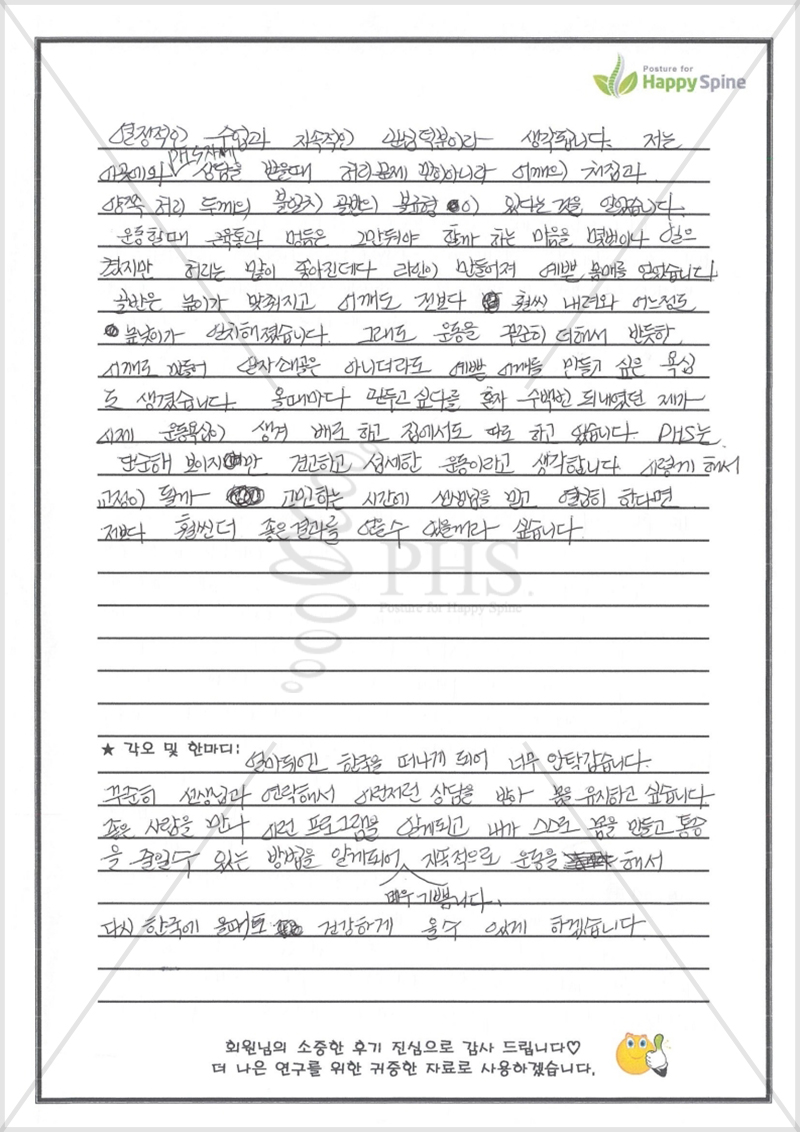 Posture for
Happy Spine
열정적인 수업과 지속적인 관심덕분이라 생각됩니다. 저는
PHS자세
이곳에와 상담을 받을때 허리문제 뿐아니라 어깨의 처짐과
양쪽 허리 두께의 불일치 골반의 불균형 이 있다는 것을 알았습니다.
운동할때 근육통과 멍듦은 그만둬야 할까 하는 마음을 몇번이나 일으
켰지만 허리는 많이 좋아진데다 라인이 만들어져 예쁜 몸매를 얻었습니다
골반은 높이가 맞춰지고 어깨도 전보다 훨씬 내려와 어느정도
높낮이가 일치해졌습니다. 그래도 운동을 꾸준히 더해서 반듯한
어깨로 만들어 일자쇄골은 아니더라도 예쁜 어깨를 만들고 싶은 욕심
도 생겼습니다. 올때마다 관두고 싶다를 혼자 수백번 되내였던 제가
이제 운동욕심이 생겨 배로 하고 집에서도 따로 하고 있습니다. PHS는
단순해 보이지만 견고하고 섬세한 운동이라고 생각합니다. 이렇게 해서
교정이 될까 고민하는 시간에 선생님을 믿고 열심히 한다면
저보다 훨씬 더 좋은결과를 얻을수 있을꺼라 싶습니다.
PHS.
Posture for Happy Spine
★ 각오 및 한마디: 얼마뒤엔 한국을 떠나게 되어 너무 안탁갑습니다.
꾸준히 선생님과 연락해서 이런저런 상담을 받아 몸을 유지하고 싶습니다.
좋은 사람을 만나 이런 프로그램을 알게되고 내가 스스로 몸을 만들고 통증
을 줄일수 있는 방법을 알게되어 지속적으로 운동을 해서
매우 기쁩니다.
다시 한국에 올때도 건강하게 올수 있게 하겠습니다.
회원님의 소중한 후기 진심으로 감사 드립니다♡
더 나은 연구를 위한 귀중한 자료로 사용하겠습니다.